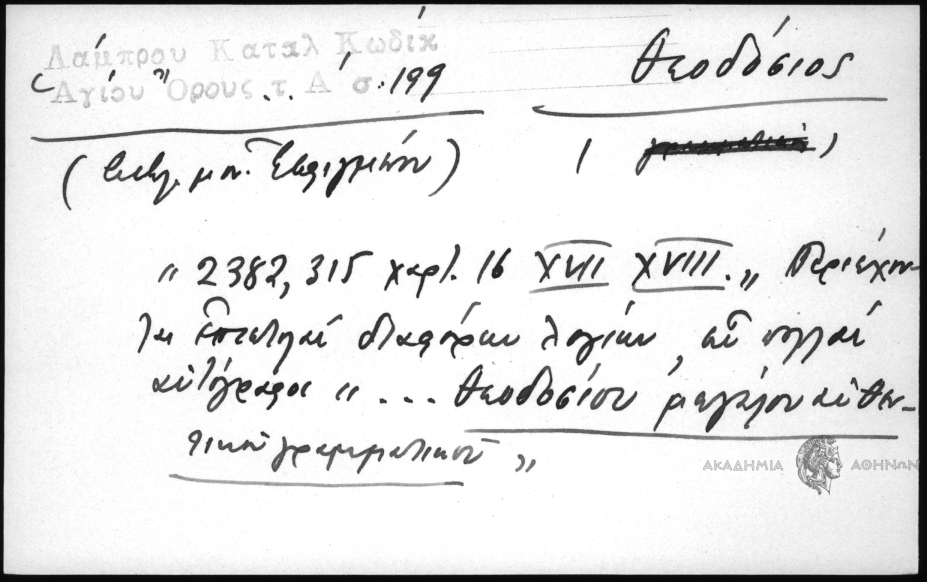 Λάμπρου Καταλ Κωδικ
Αγίου Όρους τ. Α σ. 199
Θεοδόσιος
( μον. Ἐσφιγμένου )
( )
" 2382, 315 χαρτ. 16 XVII XVIII. " Περιέχον-
ται ἐπιστολαὶ διαφόρων λογίων, πολλαὶ
αὐτόγραφοι " ... Θεοδοσίου μεγάλου αὐθεν-
τικοῦ γραμματικοῦ "
ΑΚΑΔΗΜΙΑ ΑΘΗΝΩΝ